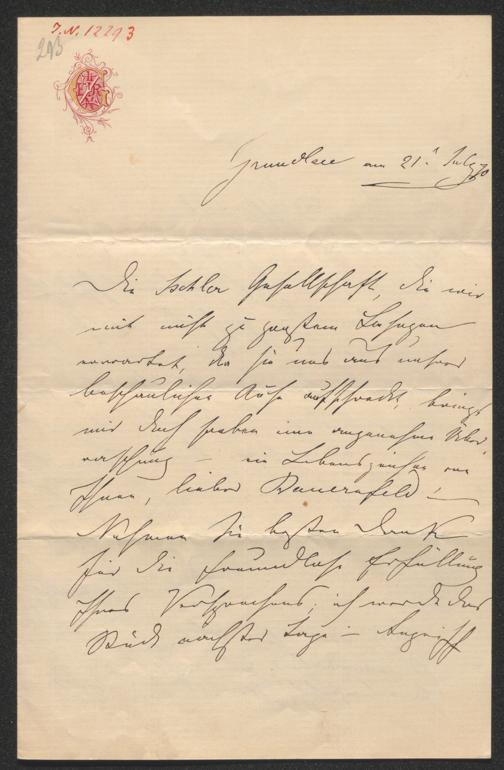 J.N. 12293
293
Grundlsee am 21t July 70
Die Ischler Gesellschaft, die wir
mit nicht zu großem Behagen
erwartet, da sie uns aus unsrer
beschaulichen Ruhe aufschreckt, bringt
mir doch soeben eine angenehme Über
raschung – ein Lebenszeichen von
Ihnen, lieber Bauernfeld! –
Nehmen Sie besten Dank
für die freundliche Erfüllung
Ihres Versprechens; ich werde das
Stück nächster Tage in Angriff